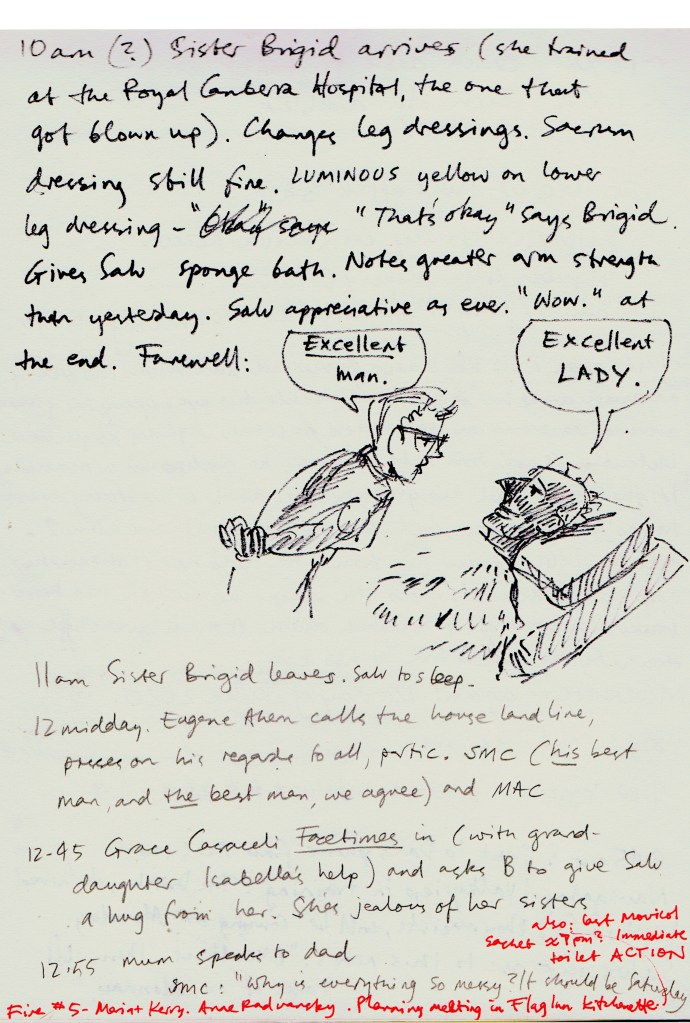 10am (?) Sister Brigid arrives (she trained
at the Royal Canberra Hospital, the one that
got blown up). Changes leg dressings. Sacrum
dressing still fine. LUMINOUS yellow on lower
leg dressing - "Okay" says "That's okay" says Brigid.
Gives Salv sponge bath. Notes greater arm strength
than yesterday. Salv appreciative as ever. "Wow." at
the end. Farewell:
Excellent
man.
Excellent
LADY.
11am Sister Brigid leaves. Salv to sleep.
12 midday. Eugene Ahern calls the house landline,
passes on his regards to all, partic. SMC (his best
man, and the best man, we agree) and MAC
12-45 Grace Casaceli Facetimes in (with grand-
daughter Isabella's help) and asks B to give Salv
a hug from her. She's jealous of her sisters
also: last Movicol
sachet 7pm? Immediate
toilet ACTION
12.55 mum speaks to dad
SMC: "Why is everything so messy? It should be Saturday
Fire #5 - Kerry. Anne Radvansky. Planning meeting in Flag Inn Kitchenette.